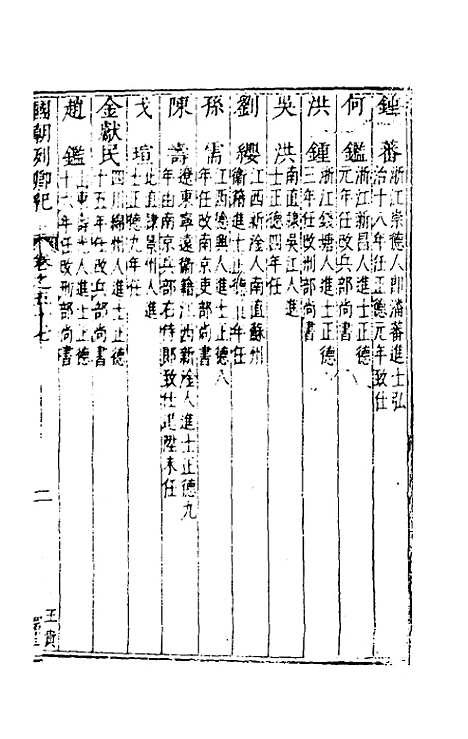 鍾蕃 浙江崇德人即潘蕃進士弘
治十八年任正德元年致仕
何鑑 浙江新昌人進士正德
元年任改兵部尚書
洪鍾 浙江錢塘人進士正德
三年任改刑部尚書
吳洪 南直隸吳江人進
士正德四年任
劉纓 江西新淦人南直蘇州
衛籍進士正德年任
孫需 江西德興人進士正德八
年任改南京吏部尚書
陳壽 遼東寧遠衛籍江西新淦人進士正德九
年由南京兵部右侍郎致仕起陞未任
戈瑄 北直隸景州人進
士正德九年任
金獻民 四川綿州人進士正德
十五年任改兵部尚書
趙鑑 山東壽光人進士正德
十六年任改刑部尚書
國朝列卿紀 卷之五十七 二
王貞